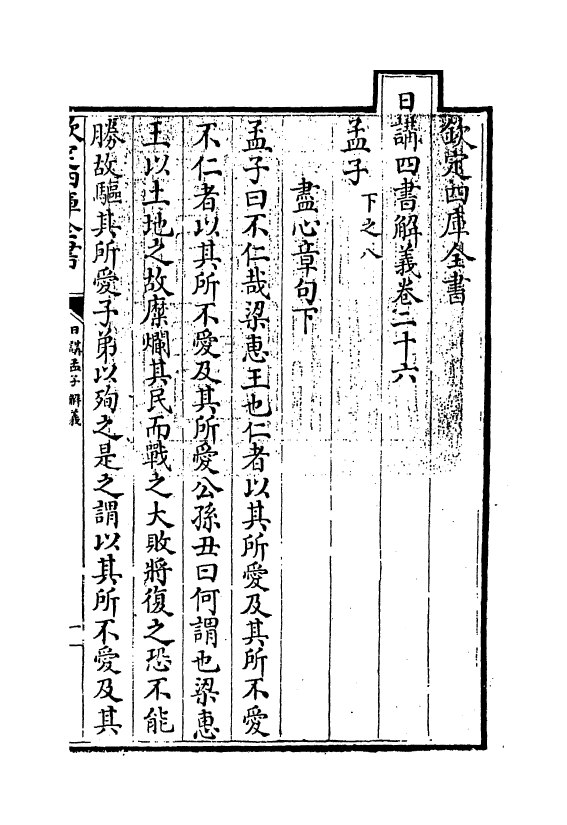 欽定四庫全書
日講四書解義卷二十六
孟子
下之八
盡心章句下
孟子曰不仁哉梁惠王也仁者以其所愛及其所不愛
不仁者以其所不愛及其所愛公孫丑曰何謂也梁惠
王以土地之故糜爛其民而戰之大敗將復之恐不能
勝故驅其所愛子弟以殉之是之謂以其所不愛及其
欽定四庫全書
日講孟子解義
一